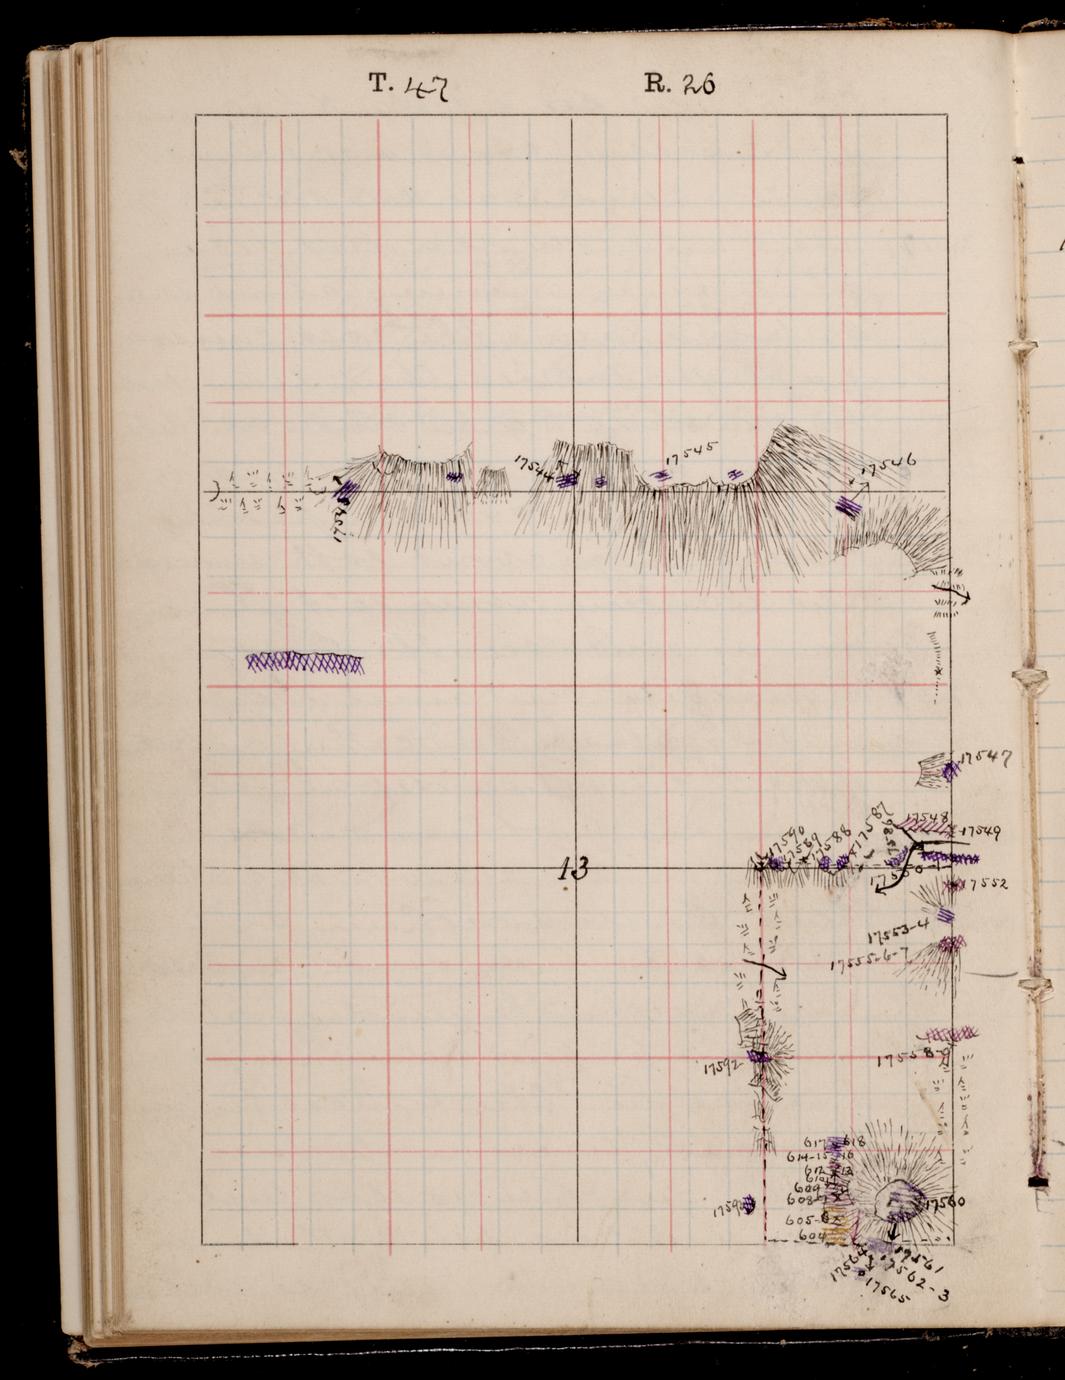 T. 47 R. 26
17544
17545
17546
17547
17548
17549
17590
17589
17588
17587
13
17552
17553-4
17555-6-7
17558-9
17592
617 618
614-15 16
612 13
610
609
608
605-6
604
17560
17561
17562-3
17564
17565